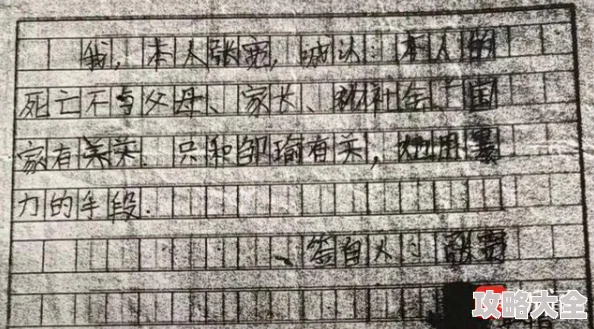 我，本人张宽，诚认：本人的
死亡不与父母、家长、和社会、国
家有关系。只和邹瑜有关，她用暴
力的手段.
签自人：张宽
攻略大全